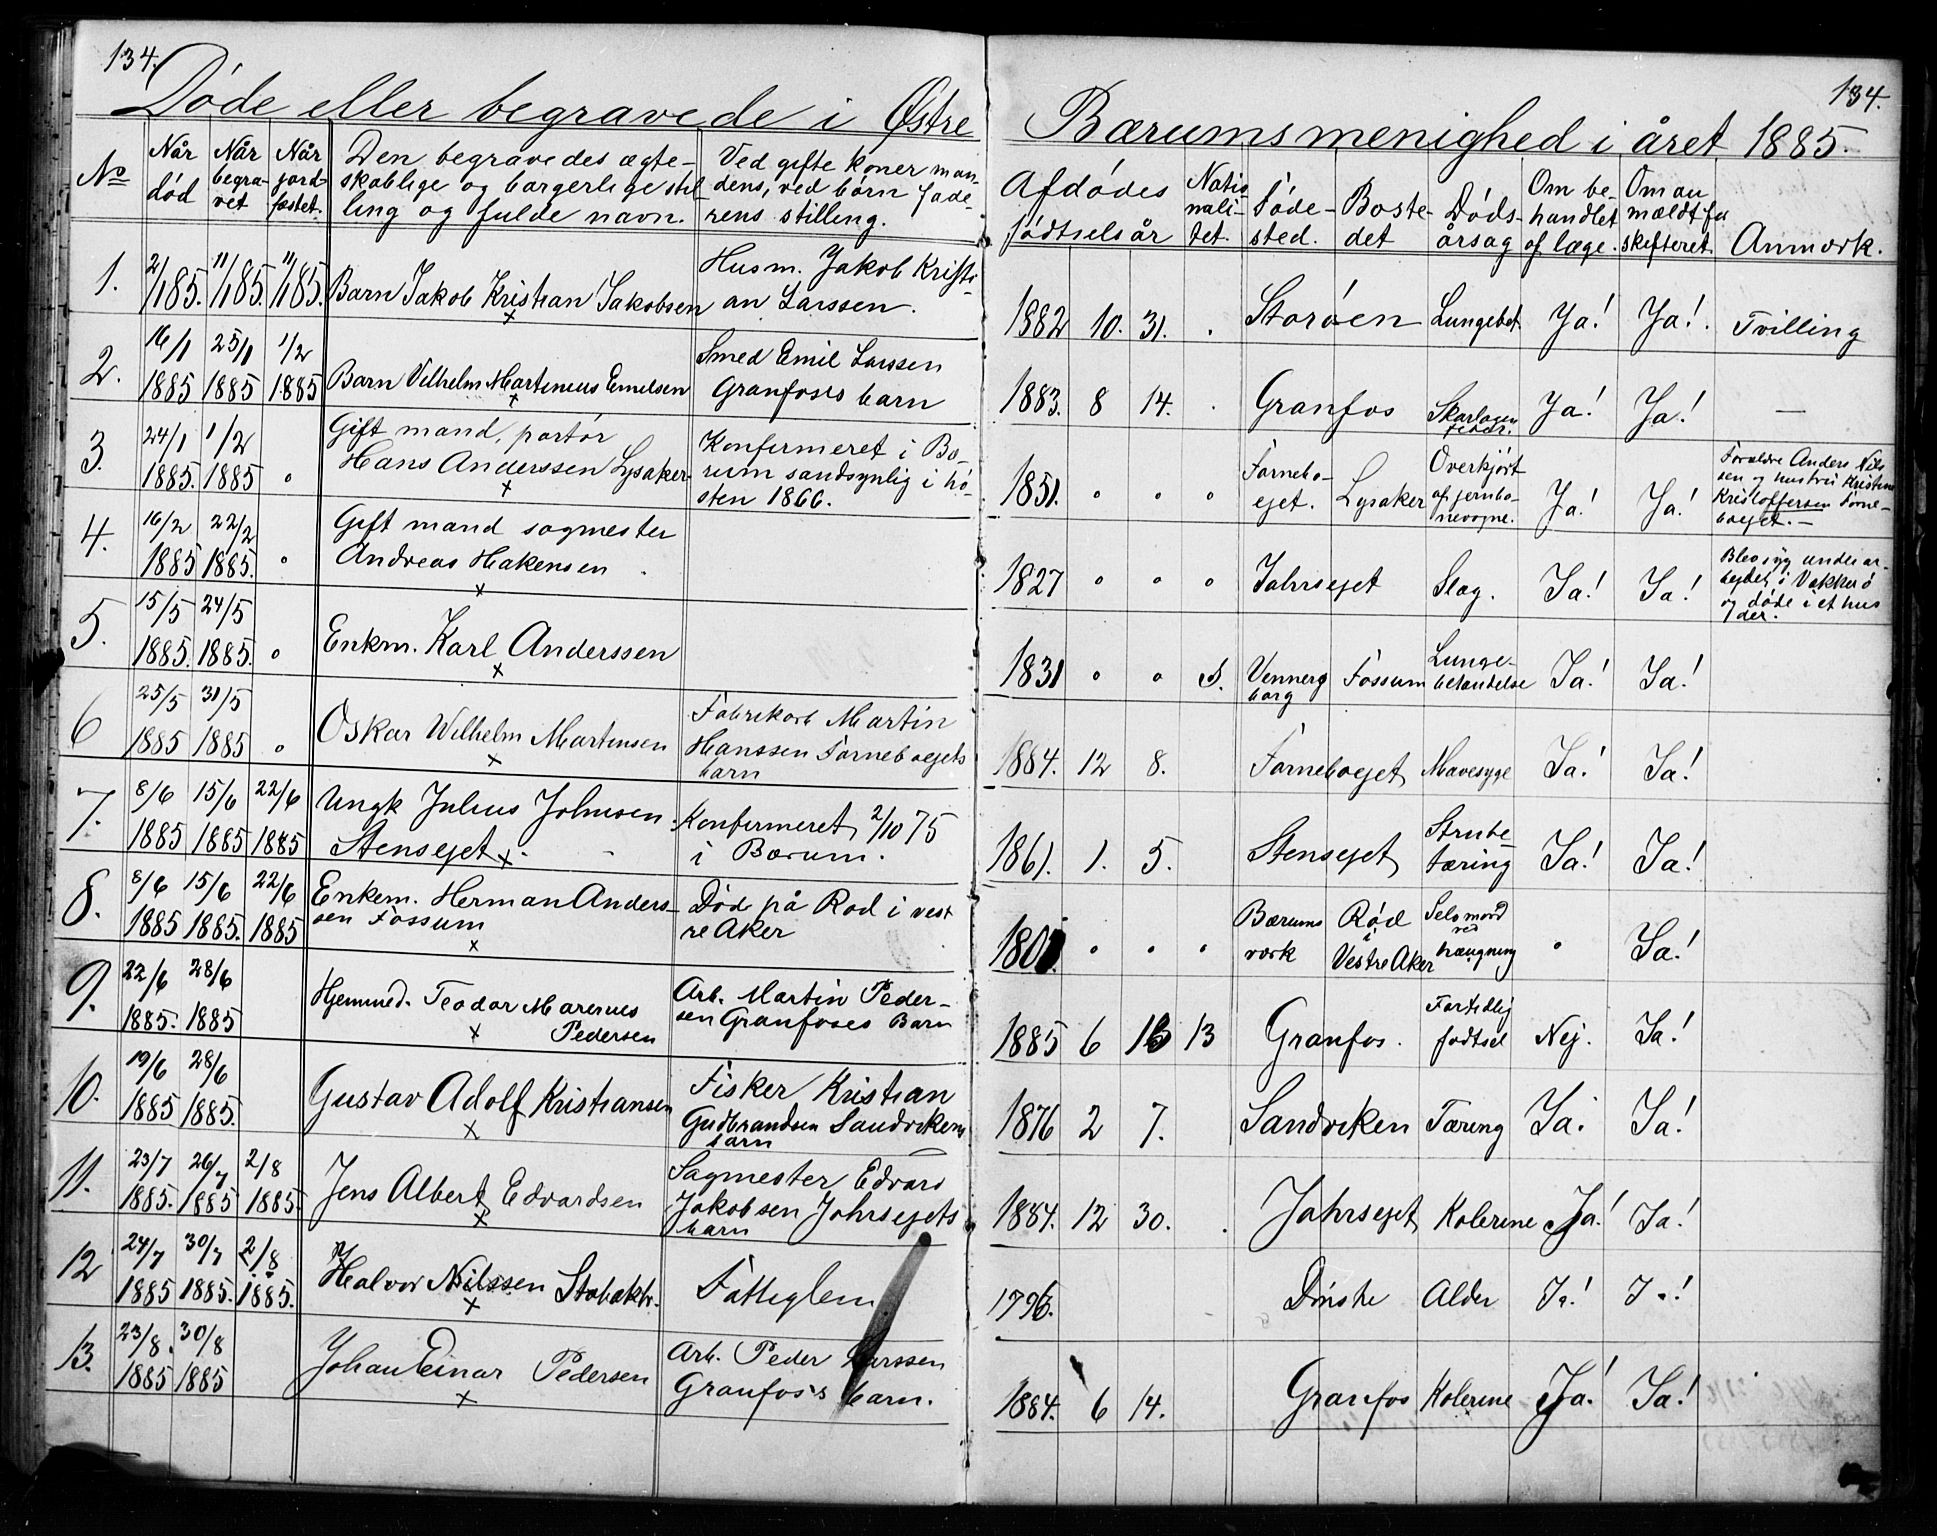 134.
134.
Døde eller begravede i Østre Bærums menighed i året 1885.
No
Når død
Når begravet
Når jordfæstet.
Den begravedes ægte-
skablige og borgerlige stil-
ling og fulde navn.
Ved gifte koner man-
dens, ved børn fade-
rens stilling.
Afdødes
fødselsår
Natio
nali-
tet.
Føde-
sted.
Boste-
det
Døds-
årsag
Om be-
handlet
af læge.
Om an
mældt fu
skifteret.
Anmærk.
1. 2/1 85. 11/1 85. 11/1 85. Barn Jakob Kristian Jakobsen
x
Husm. Jakob Kristi-
an Larssen.
1882 10. 31. . Storøen Lungebet. Ja! Ja! Tvilling
2. 16/1 1885 25/1 1885 1/2 1885 Barn Vilhelm Martinius Emilsen
x
Smed Emil Larssen
Granfoss barn
1883. 8 14. . Granfos Skarlagen
feber. Ja! Ja! —
3. 24/1 1885. 1/2 1885 o Gift mand, portør
Hans Anderssen Lysaker.
x
Konfirmeret i Bæ-
rum sandsynlig i hø-
sten 1866.
1851. o o o Fornebo-
ejet. Lysaker Overkjørt
af jernba-
nevogne. Ja! Ja!
Forældre Anders Nils
sen og hustru Kristine
Kristoffersen Forne-
boejet.—
4. 16/2 1885 22/2 1885. o Gift mand sagmester
Andreas Hakensen
x
1827 o o o Jahrsejet Slag. Ja! Ja!
Blev syg under ar-
bejdet i Vækkerø
og døde i et hus
der.
5. 15/5 1885. 24/5 1885. o Enkm. Karl Anderssen
x
1831 o o S. Vennersborg Fossum Lunge-
betændelse Ja! Ja!
6 25/5 1885 31/5 1885 o Oskar Wilhelm Martinsen
x
Fabrikarb Martin
Hanssen Forneboejets
barn
1884. 12 8. Forneboejet Mavesyge Ja! Ja!
7. 8/6 1885 15/6 1885 22/6 1885 Ungk Julius Johnsen
Stensejet x
Konfirmeret 2/10 75
i Bærum.
1861. 1. 5. Stensejet Strube-
tæring Ja! Ja!
8. 8/6 1885 15/6 1885. 22/6 1885 Enkem. Herman Anders-
sen Fossum
x
Død på Rød i vest
re Aker
180 o o o Bærums
værk Rød
i
Vestre Aker Selvmord
ved
hængning o Ja!
9. 22/6 1885. 28/6 1885 Hjemmed. Teodor Marenus
x Pedersen
Arb. Martin Peder-
sen Granfoses Barn
1885 6 13 13 Granfos. Fortidlig
fødsel Nej. Ja!
10. 19/6 1885 28/6 1885. Gustav Adolf Kristiansen
x
Fisker Kristian
Gudbrandsen Sandvikens
barn
1876 2 7. Sandviken Tæring Ja! Ja!
11. 23/7 1885. 26/7 1885 2/8 1885. Jens Albert Edvardsen
x
Sagmester Edvard
Jakobsen Jahrsejets
barn
1884. 12 30. . Jahrsejet Kolerine Ja! Ja!
12 24/7 1885 30/7 1885. 2/8 1885. Halvor Nilssen Stabækbr.
x
Fattiglem.
1796. Dønske Alder Ja! Ja!
13. 23/8. 1885 30/8 1885 Johan Einar Pedersen
x
Arb. Peder Larssen
Granfoss barn.
1884. 6 14. Granfos Kolerine Ja! Ja!